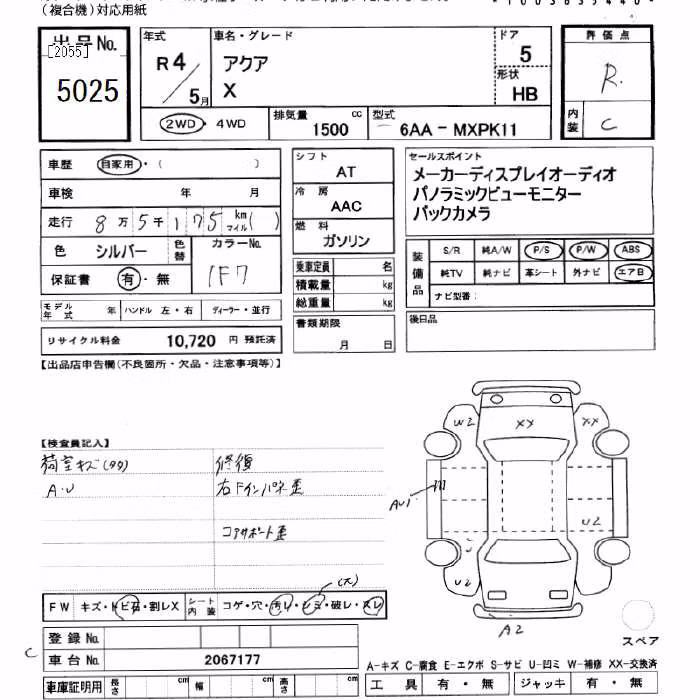 (複合機)対応用紙
出品No.
[2055]
5025
年式
R4/5月
車名・グレード
アクア
X
ドア
5
形状
HB
評価点
R
内装
C
2WD・4WD
排気量
1500 cc
型式
6AA-MXPK11
車歴 自家用・( )
車検 年 月
走行 8万5千175 km マイル( )
色 シルバー 色替
カラーNo.
1F7
保証書 有・無
シフト
AT
冷房
AAC
燃料
ガソリン
乗車定員 名
積載量 kg
総重量 kg
書類期限
月 日
セールスポイント
メーカーディスプレイオーディオ
パノラミックビューモニター
バックカメラ
装備品
S/R 純A/W P/S P/W ABS
純TV 純ナビ 革シート 外ナビ エアB
ナビ型番:
後日品
モデル年式 年 ハンドル 左・右 ディーラー・並行
リサイクル料金 10,720 円 預託済
【出品店申告欄(不良箇所・欠品・注意事項等)】
【検査員記入】
荷室キズ(タタ)
A・U
修復
右Fインパネ歪
コアサポート歪
W2 XX XX
AU1
U2
U
U2
A2
スペア
(大)
FW キズ・トビ石・割レX シート内装 コゲ・穴・汚レ・シミ・破レ・スレ
登録No.
C
車台No. 2067177
車庫証明用 長さ cm 幅 cm 高さ cm
A-キズ C-腐食 E-エクボ S-サビ U-凹ミ W-補修 XX-交換済
工具 有・無 ジャッキ 有・無